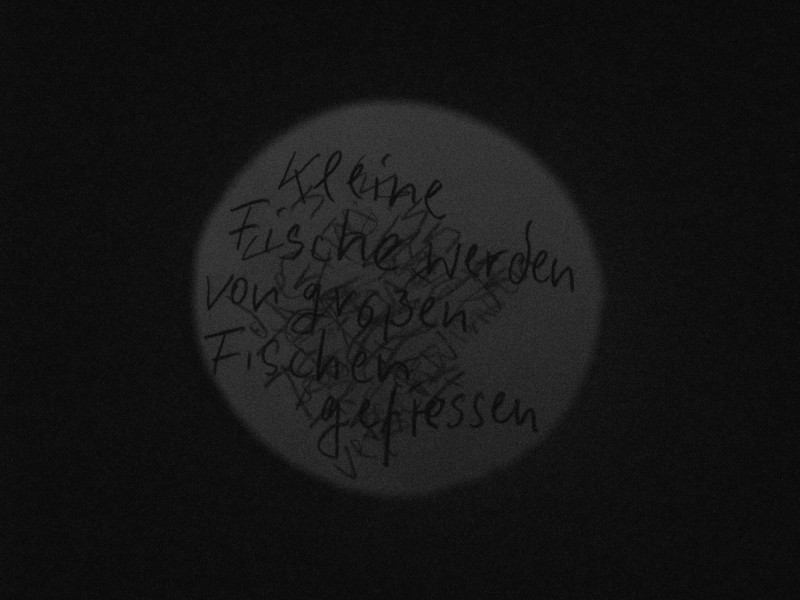 Kleine
Fische werden
von großen
Fischen
gefressen